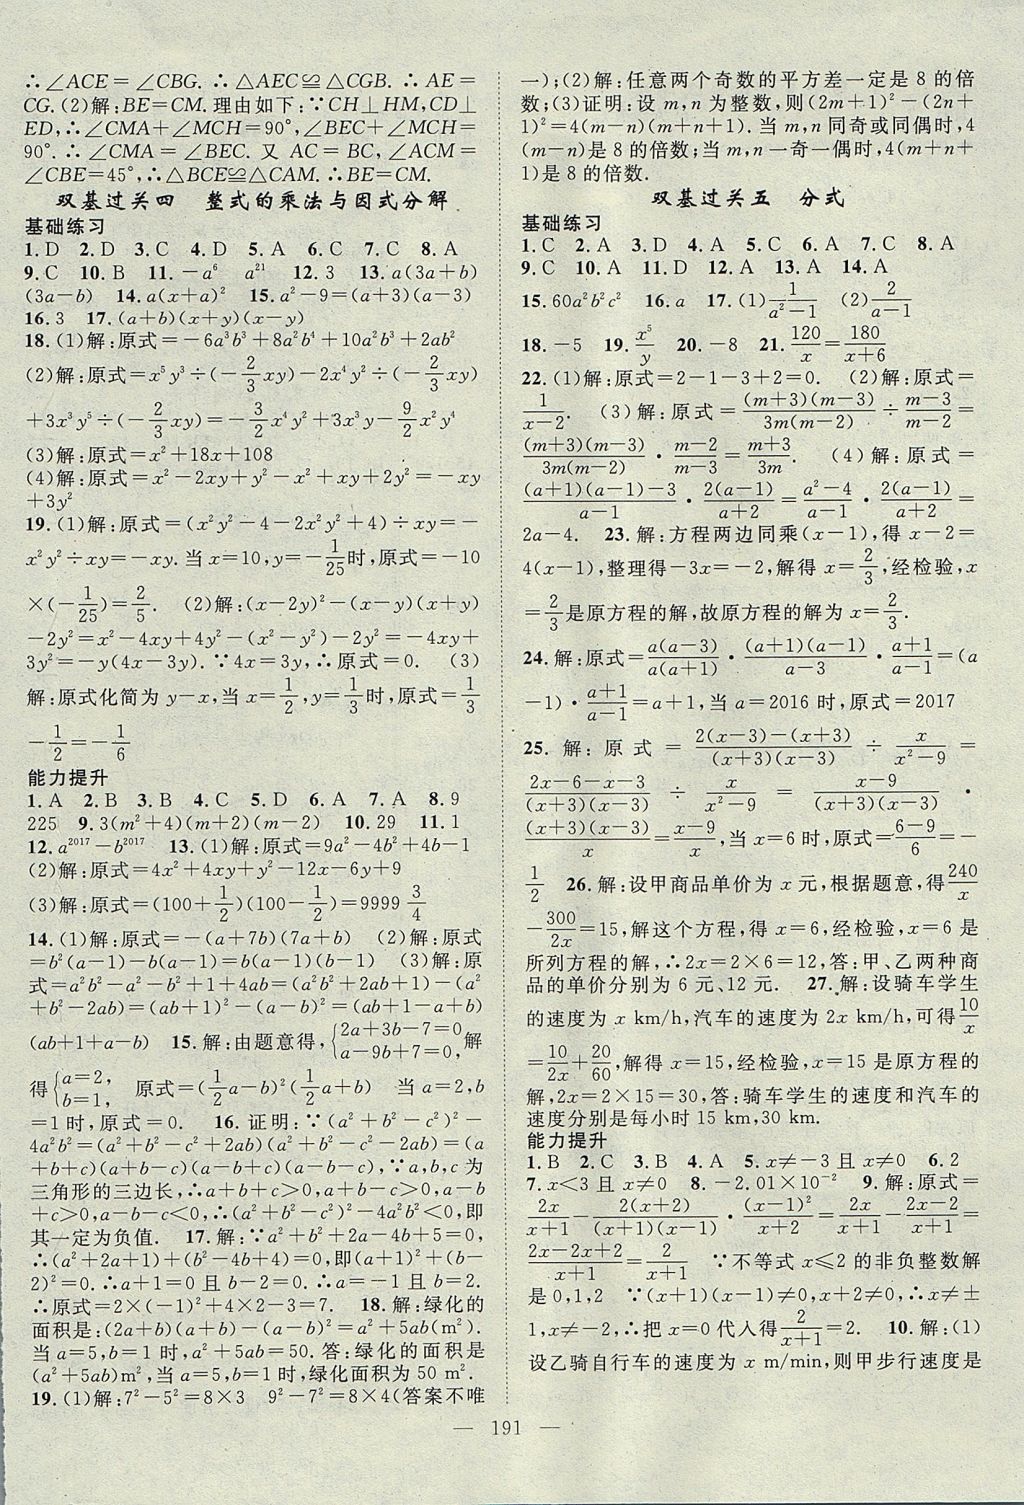 ∴∠ACE=∠CBG. ∴△AEC≌△CGB. ∴AE=
CG. (2)解:BE=CM. 理由如下:∵CH⊥HM,CD⊥
ED,∴∠CMA+∠MCH=90°,∠BEC+∠MCH=
90°. ∴∠CMA=∠BEC. 又 AC=BC,∠ACM=
∠CBE=45°,∴△BCE≌△CAM. ∴BE=CM.
双基过关四 整式的乘法与因式分解
基础练习
1. D 2. D 3. C 4. D 5. A 6. A 7. C 8. A
9. C 10. B 11. -a⁶ a²¹ 12. 3 13. a(3a+b)
(3a-b) 14. a(x+a)² 15. a²-9=(a+3)(a-3)
16. 3 17. (a+b)(x+y)(x-y)
18. (1)解:原式=-6a³b³+8a²b⁴+10a²b³+2ab²
(2)解:原式=x⁵y³÷(-2/3 xy)-2x⁴y²÷(-2/3 xy)
+3x³y⁵÷(-2/3 xy)=-3/2 x⁴y²+3x³y-9/2 x²y⁴
(3)解:原式=x²+18x+108
(4)解:原式=x²-2xy+y²-x²+xy+2y²=-xy
+3y²
19. (1)解:原式=(x²y²-4-2x²y²+4)÷xy=-
x²y²÷xy=-xy. 当 x=10,y=-1/25时,原式=-10
×(-1/25)=2/5. (2)解:(x-2y)²-(x-y)(x+y)
-2y²=x²-4xy+4y²-(x²-y²)-2y²=-4xy+
3y²=-y(4x-3y). ∵4x=3y,∴原式=0. (3)
解:原式化简为 y-x,当 x=1/2,y=1/3时,原式=1/3
-1/2=-1/6
能力提升
1. A 2. B 3. B 4. C 5. D 6. A 7. A 8. 9
225 9. 3(m²+4)(m+2)(m-2) 10. 29 11. 1
12. a²⁰¹⁷-b²⁰¹⁷ 13. (1)解:原式=9a²-4b²+4b-1
(2)解:原式=4x²+4xy+y²-12x-6y+9
(3)解:原式=(100+1/2)(100-1/2)=9999 3/4
14. (1)解:原式=-(a+7b)(7a+b) (2)解:原式
=b²(a-1)-b(a-1)=b(a-1)(b-1) (3)解:原
式=a²b²-a²-b²+1+4ab=(a²b²+2ab+1)-(a²
+b²-2ab)=(ab+1)²-(a-b)²=(ab+1-a+b)
(ab+1+a-b) 15. 解:由题意得,{2a+3b-7=0, a-9b+7=0, 解
得{a=2, b=1, 原式=(1/2a-b)²(1/2a+b) 当 a=2,b
=1 时,原式=0. 16. 证明:∵(a²+b²-c²)²-
4a²b²=(a²+b²-c²+2ab)(a²+b²-c²-2ab)=(a
+b+c)(a+b-c)(a-b+c)(a-b-c),∵a,b,c 为
三角形的三边长,∴a+b+c>0,a+b-c>0,a-b
+c>0,a-b-c<0,∴(a²+b²-c²)²-4a²b²<0,即
其一定为负值. 17. 解:∵a²+b²+2a-4b+5=0,
∴(a²+2a+1)+(b²-4b+4)=0,即(a+1)²+(b-
2)²=0. ∴a+1=0 且 b-2=0. ∴a=-1 且 b=2.
∴原式=2×(-1)²+4×2-3=7. 18. 解:绿化的
面积是:(2a+b)(3a+b)-(a+b)²=a²+5ab(m²).
当 a=5,b=1 时,a²+5ab=50. 答:绿化的面积是
(a²+5ab)m²,当 a=5,b=1 时,绿化面积为 50 m².
19. (1)解:7²-5²=8×3 9²-7²=8×4(答案不唯
一);(2)解:任意两个奇数的平方差一定是 8 的倍
数;(3)证明:设 m,n 为整数,则(2m+1)²-(2n+
1)²=4(m-n)(m+n+1). 当 m,n 同奇或同偶时,4
(m-n)是 8 的倍数;当 m,n 一奇一偶时,4(m+n+
1)是 8 的倍数.
双基过关五 分式
基础练习
1. C 2. A 3. D 4. D 5. C 6. A 7. C 8. A
9. C 10. A 11. D 12. A 13. A 14. A
15. 60a²b²c² 16. a 17. (1)1/(a²-1) (2)2/(a-1)
18. -5 19. x⁵/y 20. -8 21. 120/x=180/(x+6)
22. (1)解:原式=2-1-3+2=0. (2)解:原式=
1/(x-2). (3)解:原式=(m+3)(m-3)/3m(m-2)÷(m-3)/(m-2)=
(m+3)(m-3)/3m(m-2)·(m-2)/(m-3)=(m+3)/3m. (4)解:原式=
((a+1)(a-1)-3)/(a-1)·2(a-1)/(a+2)=(a²-4)/(a-1)·2(a-1)/(a+2)=
2a-4. 23. 解:方程两边同乘(x-1),得 x-2=
4(x-1),整理得-3x=-2,解得 x=2/3,经检验,x=
2/3是原方程的解,故原方程的解为 x=2/3.
24. 解:原式=a(a-3)/a(a+1)·(a+1)(a-1)/(a-3)·(a+1)/(a-1)=(a
-1)·(a+1)/(a-1)=a+1. 当 a=2016 时,原式=2017
25. 解:原式=(2(x-3)-(x+3))/(x+3)(x-3)÷x/(x²-9)=
(2x-6-x-3)/(x+3)(x-3)÷x/(x²-9)=(x-9)/(x+3)(x-3)·
(x+3)(x-3)/x=(x-9)/x,当 x=6 时,原式=(6-9)/6=-
1/2 26. 解:设甲商品单价为 x 元,根据题意,得240/x
-300/2x=15,解这个方程,得 x=6,经检验,x=6 是
所列方程的解,∴2x=2×6=12,答:甲、乙两种商
品的单价分别为 6 元、12 元. 27. 解:设骑车学生
的速度为 x km/h,汽车的速度为 2x km/h,可得10/x
=10/2x+20/60,解得 x=15,经检验,x=15 是原方程的
解,2x=2×15=30,答:骑车学生的速度和汽车的
速度分别是每小时 15 km,30 km.
能力提升
1. B 2. C 3. B 4. A 5. x≠-3 且 x≠0 6. 2
7. x<3 且 x≠0 8. -2.01×10⁻² 9. 解:原式=
2x/(x+1)-2(x+2)/(x+1)(x-1)·(x-1)²/(x+2)=2x/(x+1)-(2x-2)/(x+1)=
(2x-2x+2)/(x+1)=2/(x+1) ∵不等式 x≤2 的非负整数解
是 0,1,2 ∵(x+1)(x-1)≠0,x+2≠0,∴x≠±
1,x≠-2,∴把 x=0 代入得2/(x+1)=2. 10. 解:(1)
设乙骑自行车的速度为 x m/min,则甲步行速度是
— 191 —